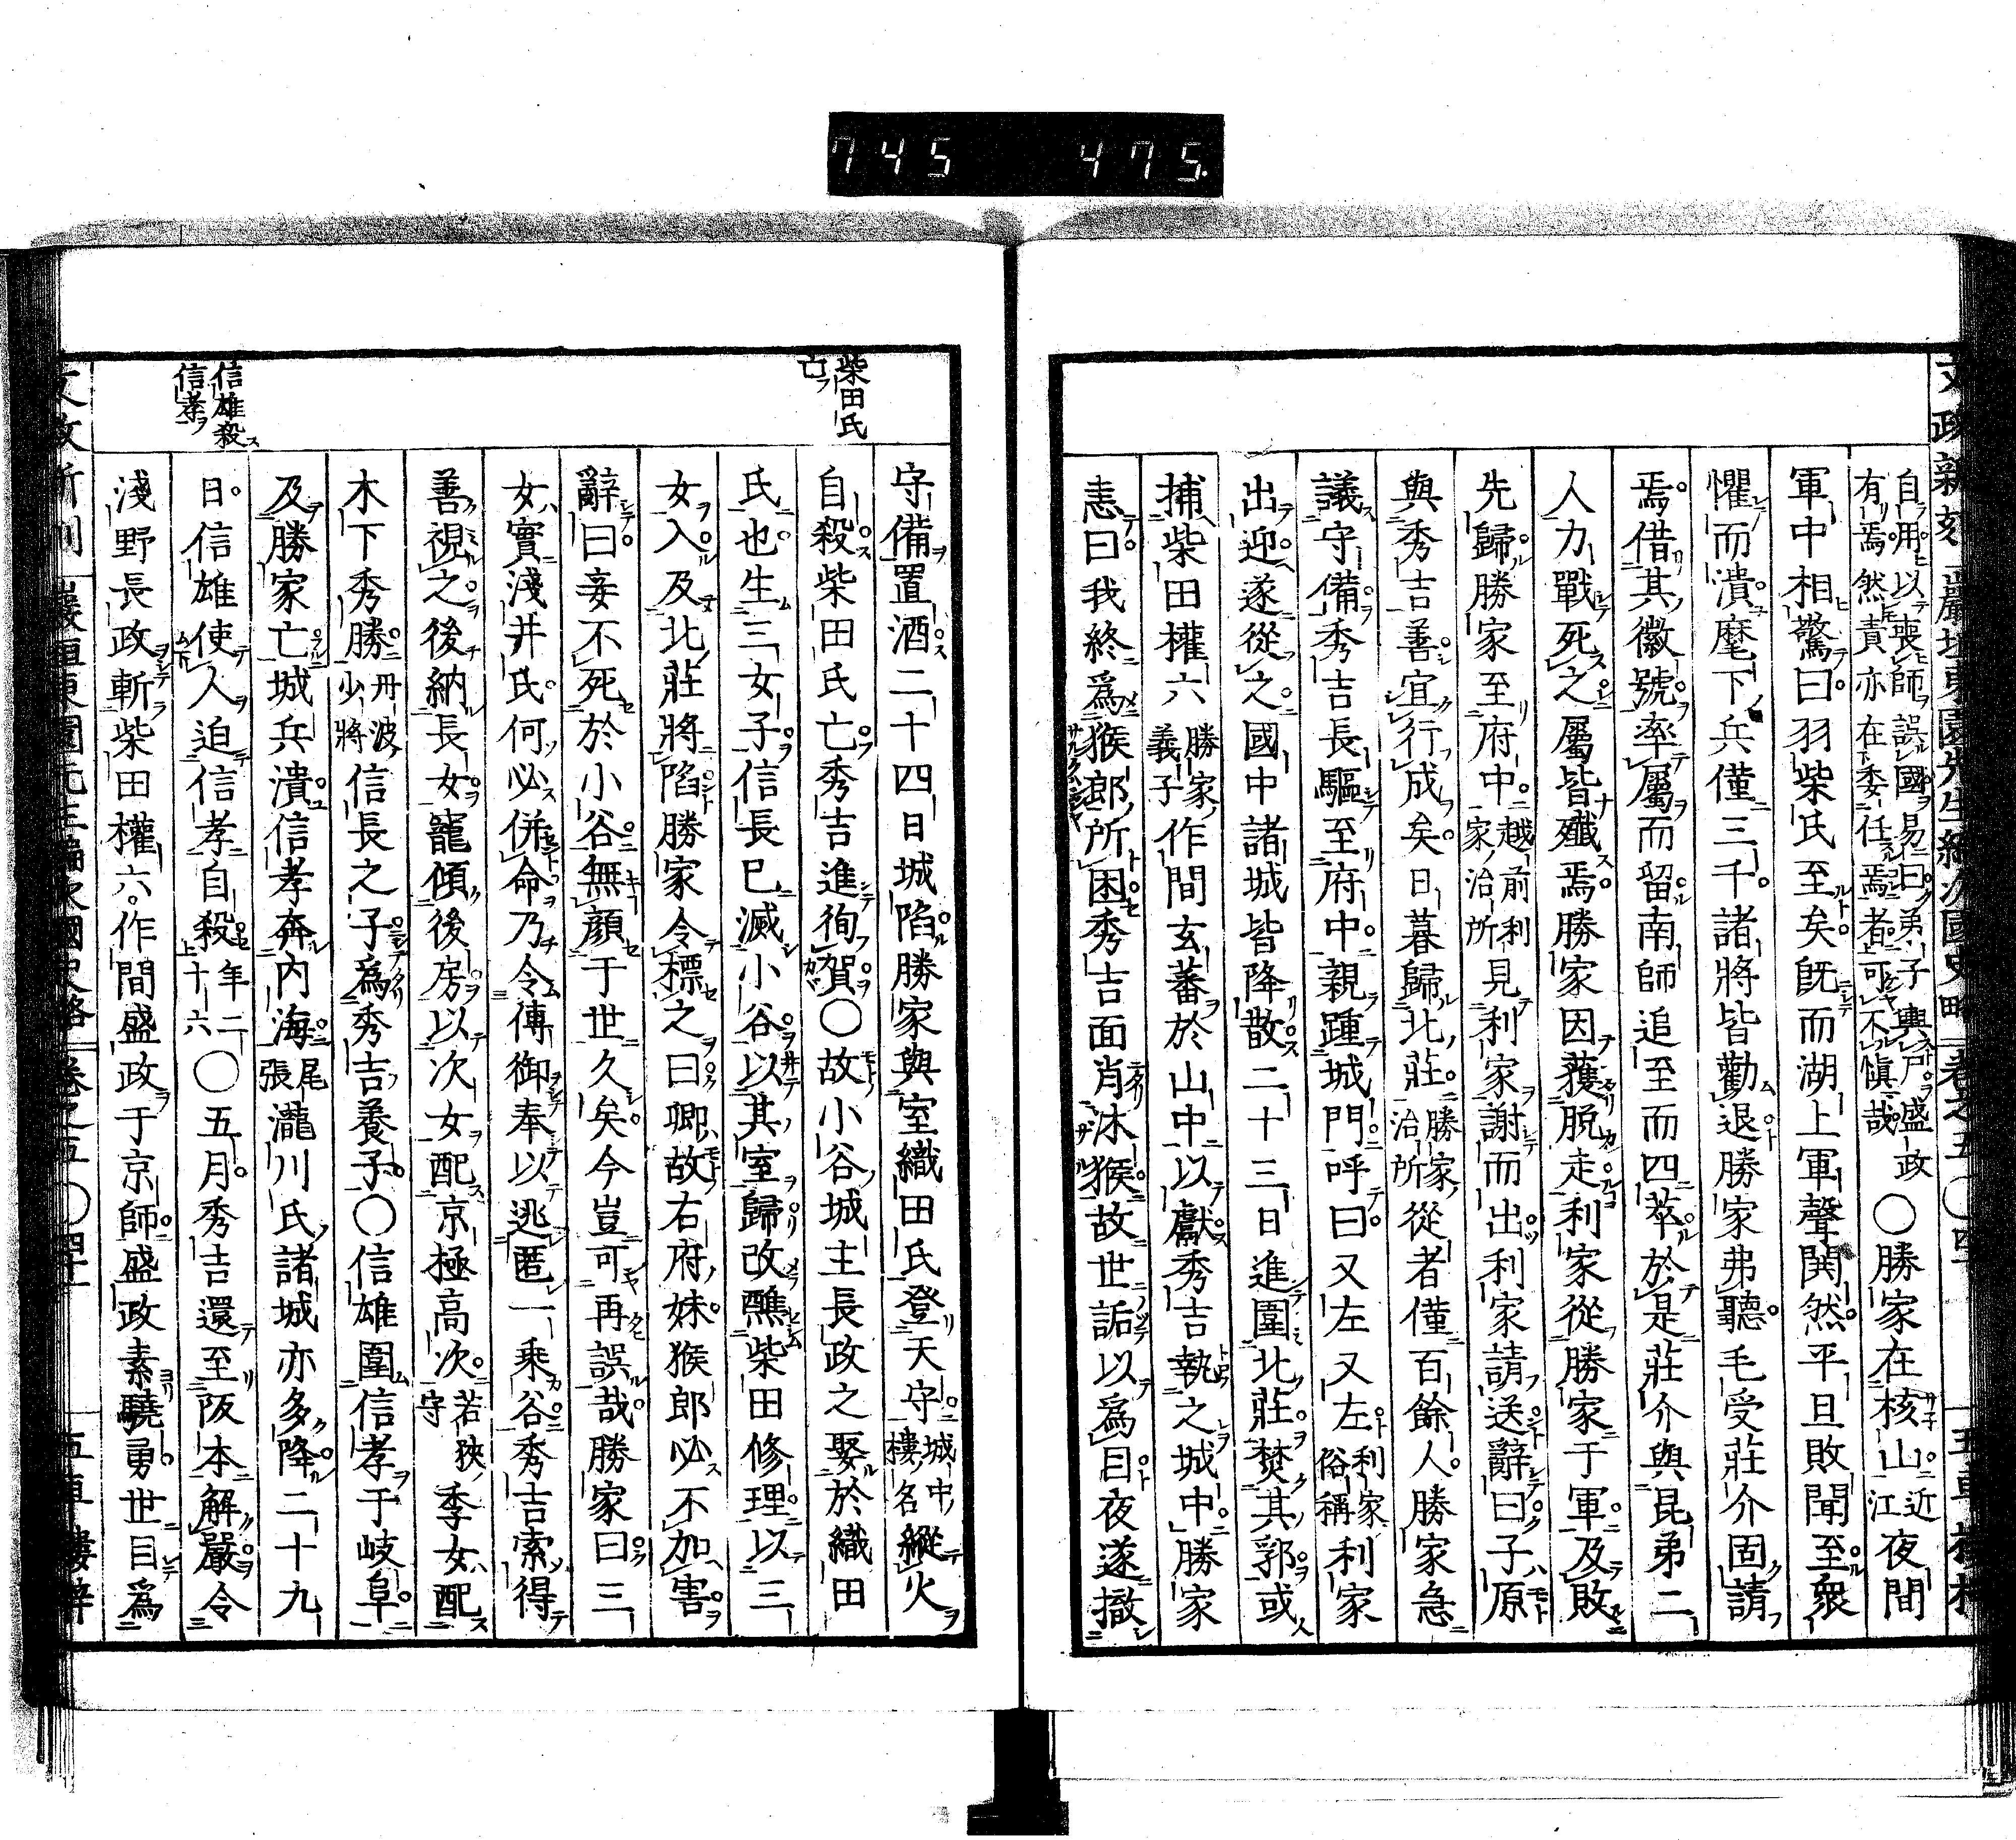 745 475.
自用以喪師誤國易曰弟子輿尸盛政
有焉然責亦在委任焉者可不愼哉
○勝家在核山近江夜間
軍中相驚曰羽柴氏至矣旣而湖上軍聲鬨然平旦敗聞至衆
懼而潰麾下兵僅三千諸將皆勸退勝家弗聽毛受莊介固請
焉借其徽號率屬而留南師追至而四萃於是莊介與昆弟二
人力戰死之屬皆殲焉勝家因獲脫走利家從勝家于軍及敗
先歸勝家至府中越前利家治所見利家謝而出利家請送辭曰子原
與秀吉善宜行成矣日暮歸北莊勝家治所從者僅百餘人勝家急
議守備秀吉長驅至府中親踵城門呼曰又左又左利家俗稱利家
出迎遂從之國中諸城皆降散二十三日進圍北莊焚其郭或
捕柴田權六勝家義子作間玄蕃於山中以獻秀吉執之城中勝家
恚曰我終爲猴郎所困秀吉面肖沐猴故世詬以爲目夜遂撤
柴田氏
亡
守備置酒二十四日城陷勝家與室織田氏登天守城中樓名縱火
自殺柴田氏亡秀吉進徇賀○故小谷城主長政之娶於織田
氏也生三女子信長已滅小谷以其室歸改醮柴田修理以三
女入及北莊將陷勝家令標之曰卿故右府妹猴郎必不加害
辭曰妾不死於小谷無顏于世久矣今豈可再誤哉勝家曰三
女實淺井氏何必併命乃令傅御奉以逃匿一乘谷秀吉索得
善視之後納長女寵傾後房以次女配京極高次若狹守季女配
木下秀勝丹波少將信長之子爲秀吉養子○信雄圍信孝于岐阜
及勝家亡城兵潰信孝奔內海尾張瀧川氏諸城亦多降二十九
信雄殺
信孝
日信雄使人迫信孝自殺年二十六○五月秀吉還至阪本解嚴令
淺野長政斬柴田權六作間盛政于京師盛政素驍勇世目爲